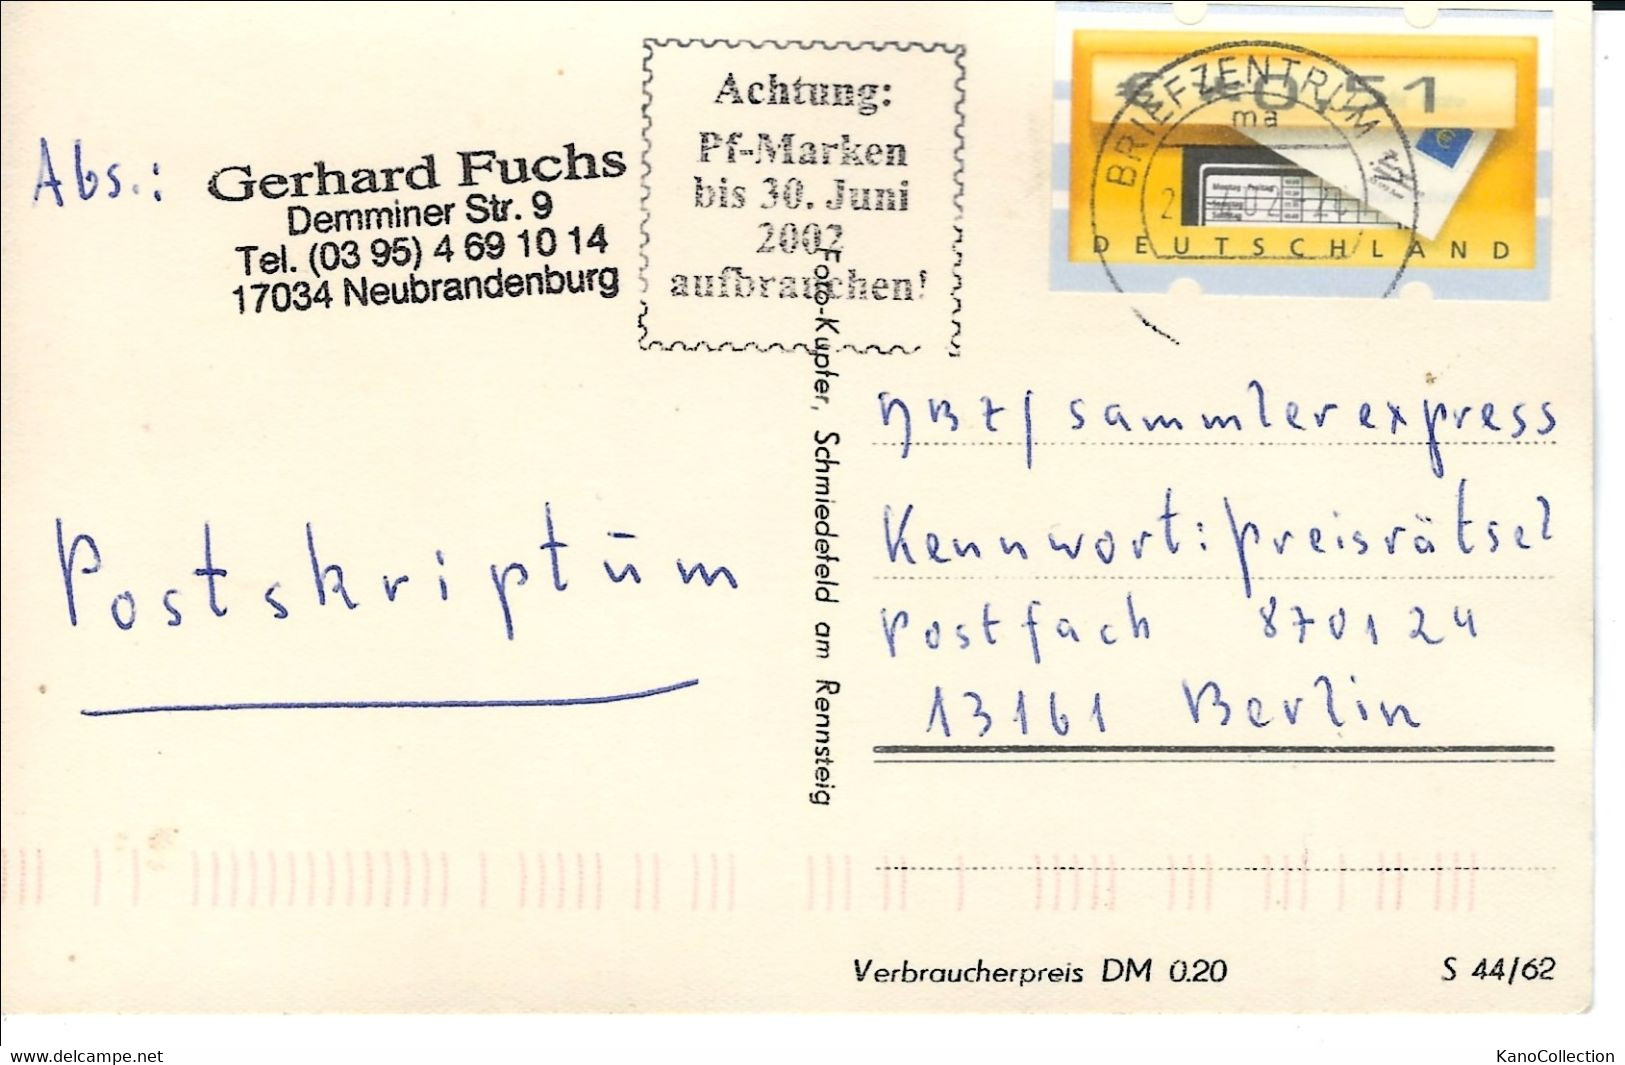 Abs.:
Gerhard Fuchs
Demminer Str. 9
Tel. (03 95) 4 69 10 14
17034 Neubrandenburg
Achtung:
Pf-Marken
bis 30. Juni
2002
aufbrauchen!
0,51
BRIEFZENTRUM
ma
DEUTSCHLAND
Postskriptum
Foto-Kupfer, Schmiedefeld am Rennsteig
DBZ/sammlerexpress
Kennwort: Preisrätsel
Postfach 870124
13161 Berlin
Verbraucherpreis DM 0.20
S 44/62
www.delcampe.net
KanoCollection